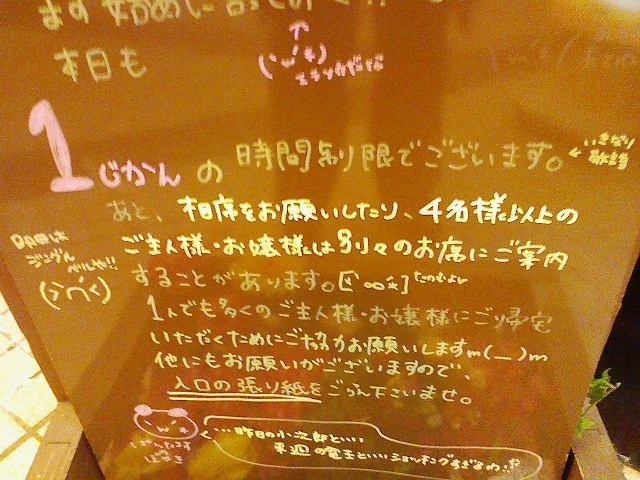 本日も
1じかんの時間制限でございます。
いきなり
敬語
あと、相席をお願いしたり、4名様以上の
ご主人様・お嬢様は別々のお席にご案内
することがあります。
1人でも多くのご主人様・お嬢様にご帰宅
いただくためにご協力お願いしますm(__)m
他にもお願いがございますので、
入口の張り紙をご覧下さいませ。
昨日の小次郎といい
来週の電王といいショッキングすぎるわ!!